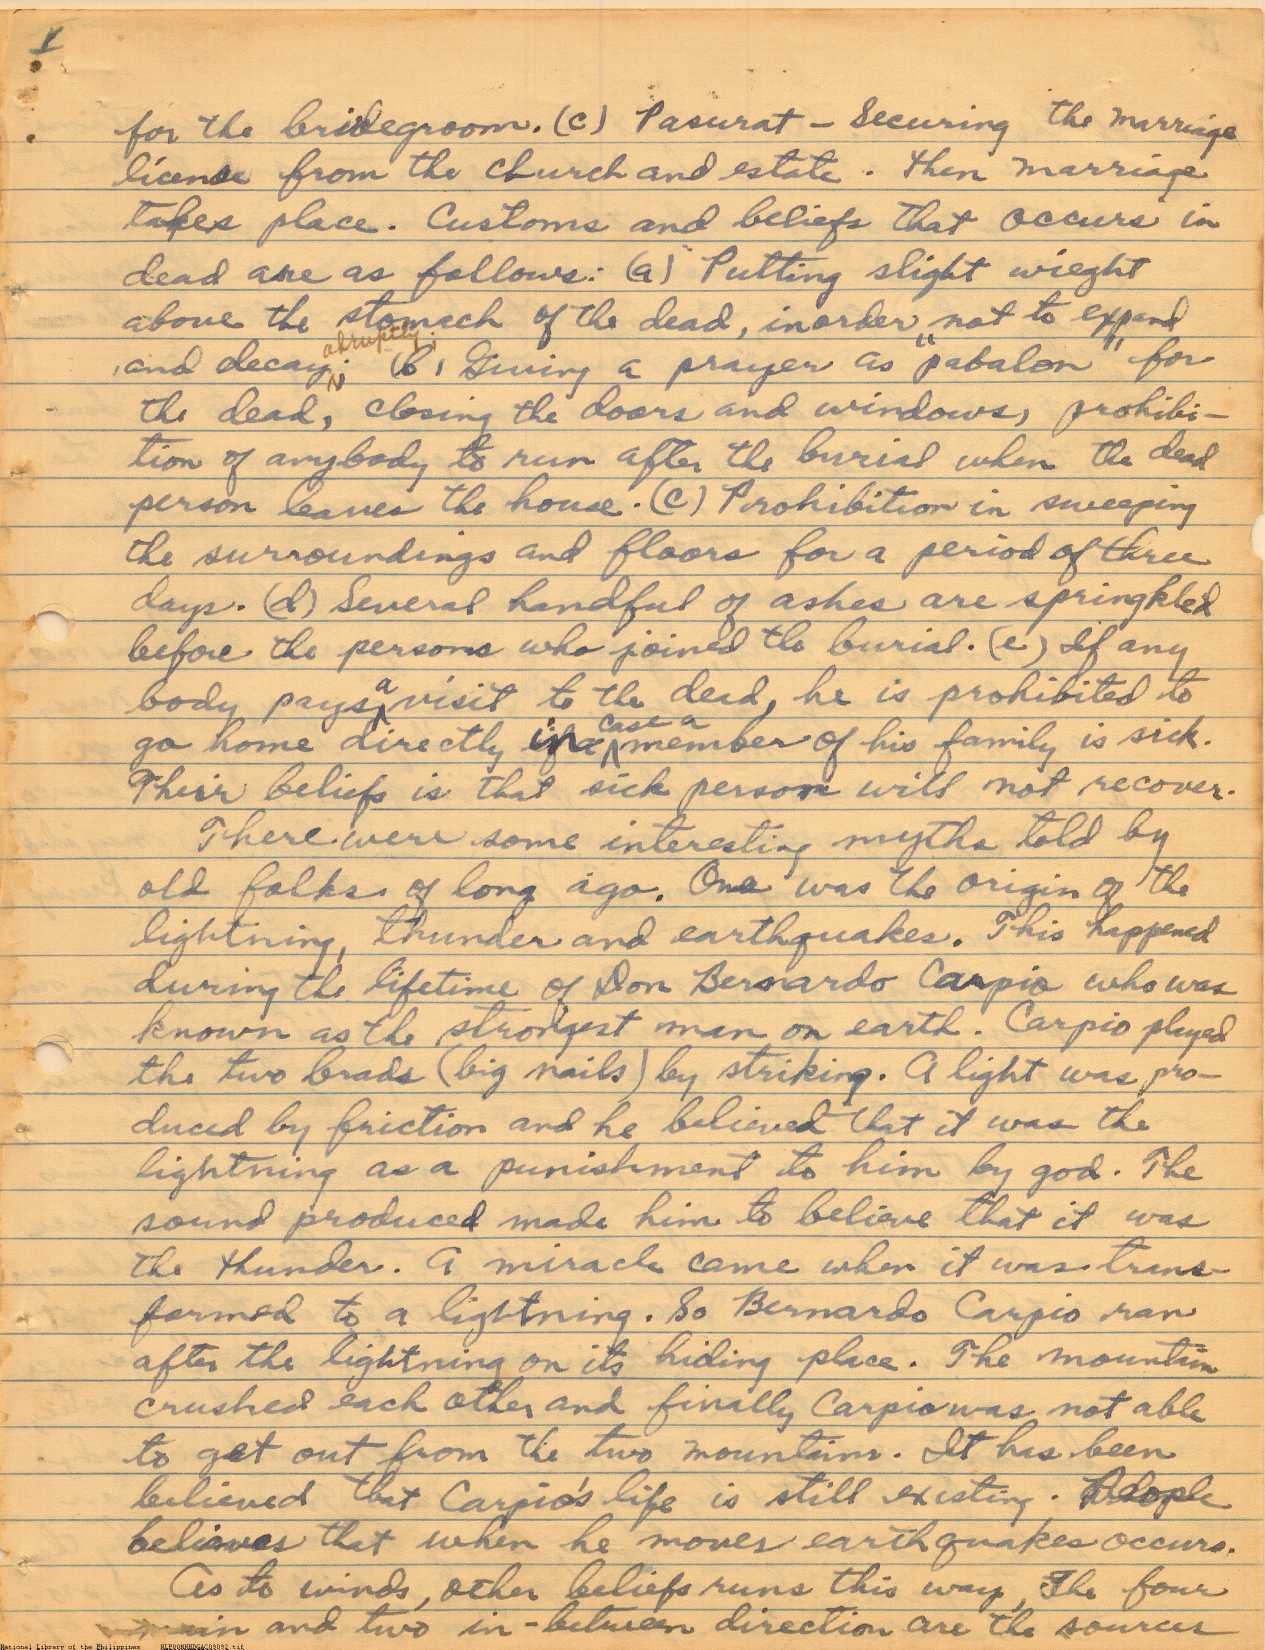 for the bridegroom. (c) Pasurat - Securing the marriage
license from the church and estate. Then marriage
takes place. Customs and beliefs that occurs in
dead are as follows: (a) Putting slight wieght
above the stomach of the dead, inorder not to expand
and decay abruptly; (b) Giving a prayer as "pabalon" for
the dead, closing the doors and windows, prohibi-
tion of anybody to run after the burial when the dead
person leaves the house. (c) Prohibition in sweeping
the surroundings and floors for a period of three
days. (d) Several handful of ashes are springkled
before the persons who joined the burial. (e) If any
body pays a visit to the dead, he is prohibited to
go home directly in case a member of his family is sick.
Their beliefs is that sick person will not recover.
There were some interesting myths told by
old folks of long ago. One was the origin of the
lightning, thunder and earthquakes. This happened
during the lifetime of Don Bernardo Carpio who was
known as the strongest man on earth. Carpio played
the two brads (big nails) by striking. A light was pro-
duced by friction and he believed that it was the
lightning as a punishment to him by god. The
sound produced made him to believe that it was
the thunder. A miracle came when it was trans-
formed to a lightning. So Bernardo Carpio ran
after the lightning on its hiding place. The mountain
crushed each other and finally Carpio was not able
to get out from the two mountains. It has been
believed that Carpio's life is still existing. People
believes that when he moves earthquakes occurs.
As to winds, other beliefs runs this way, The four
main and two in-between direction are the sources
National Library of the Philippines